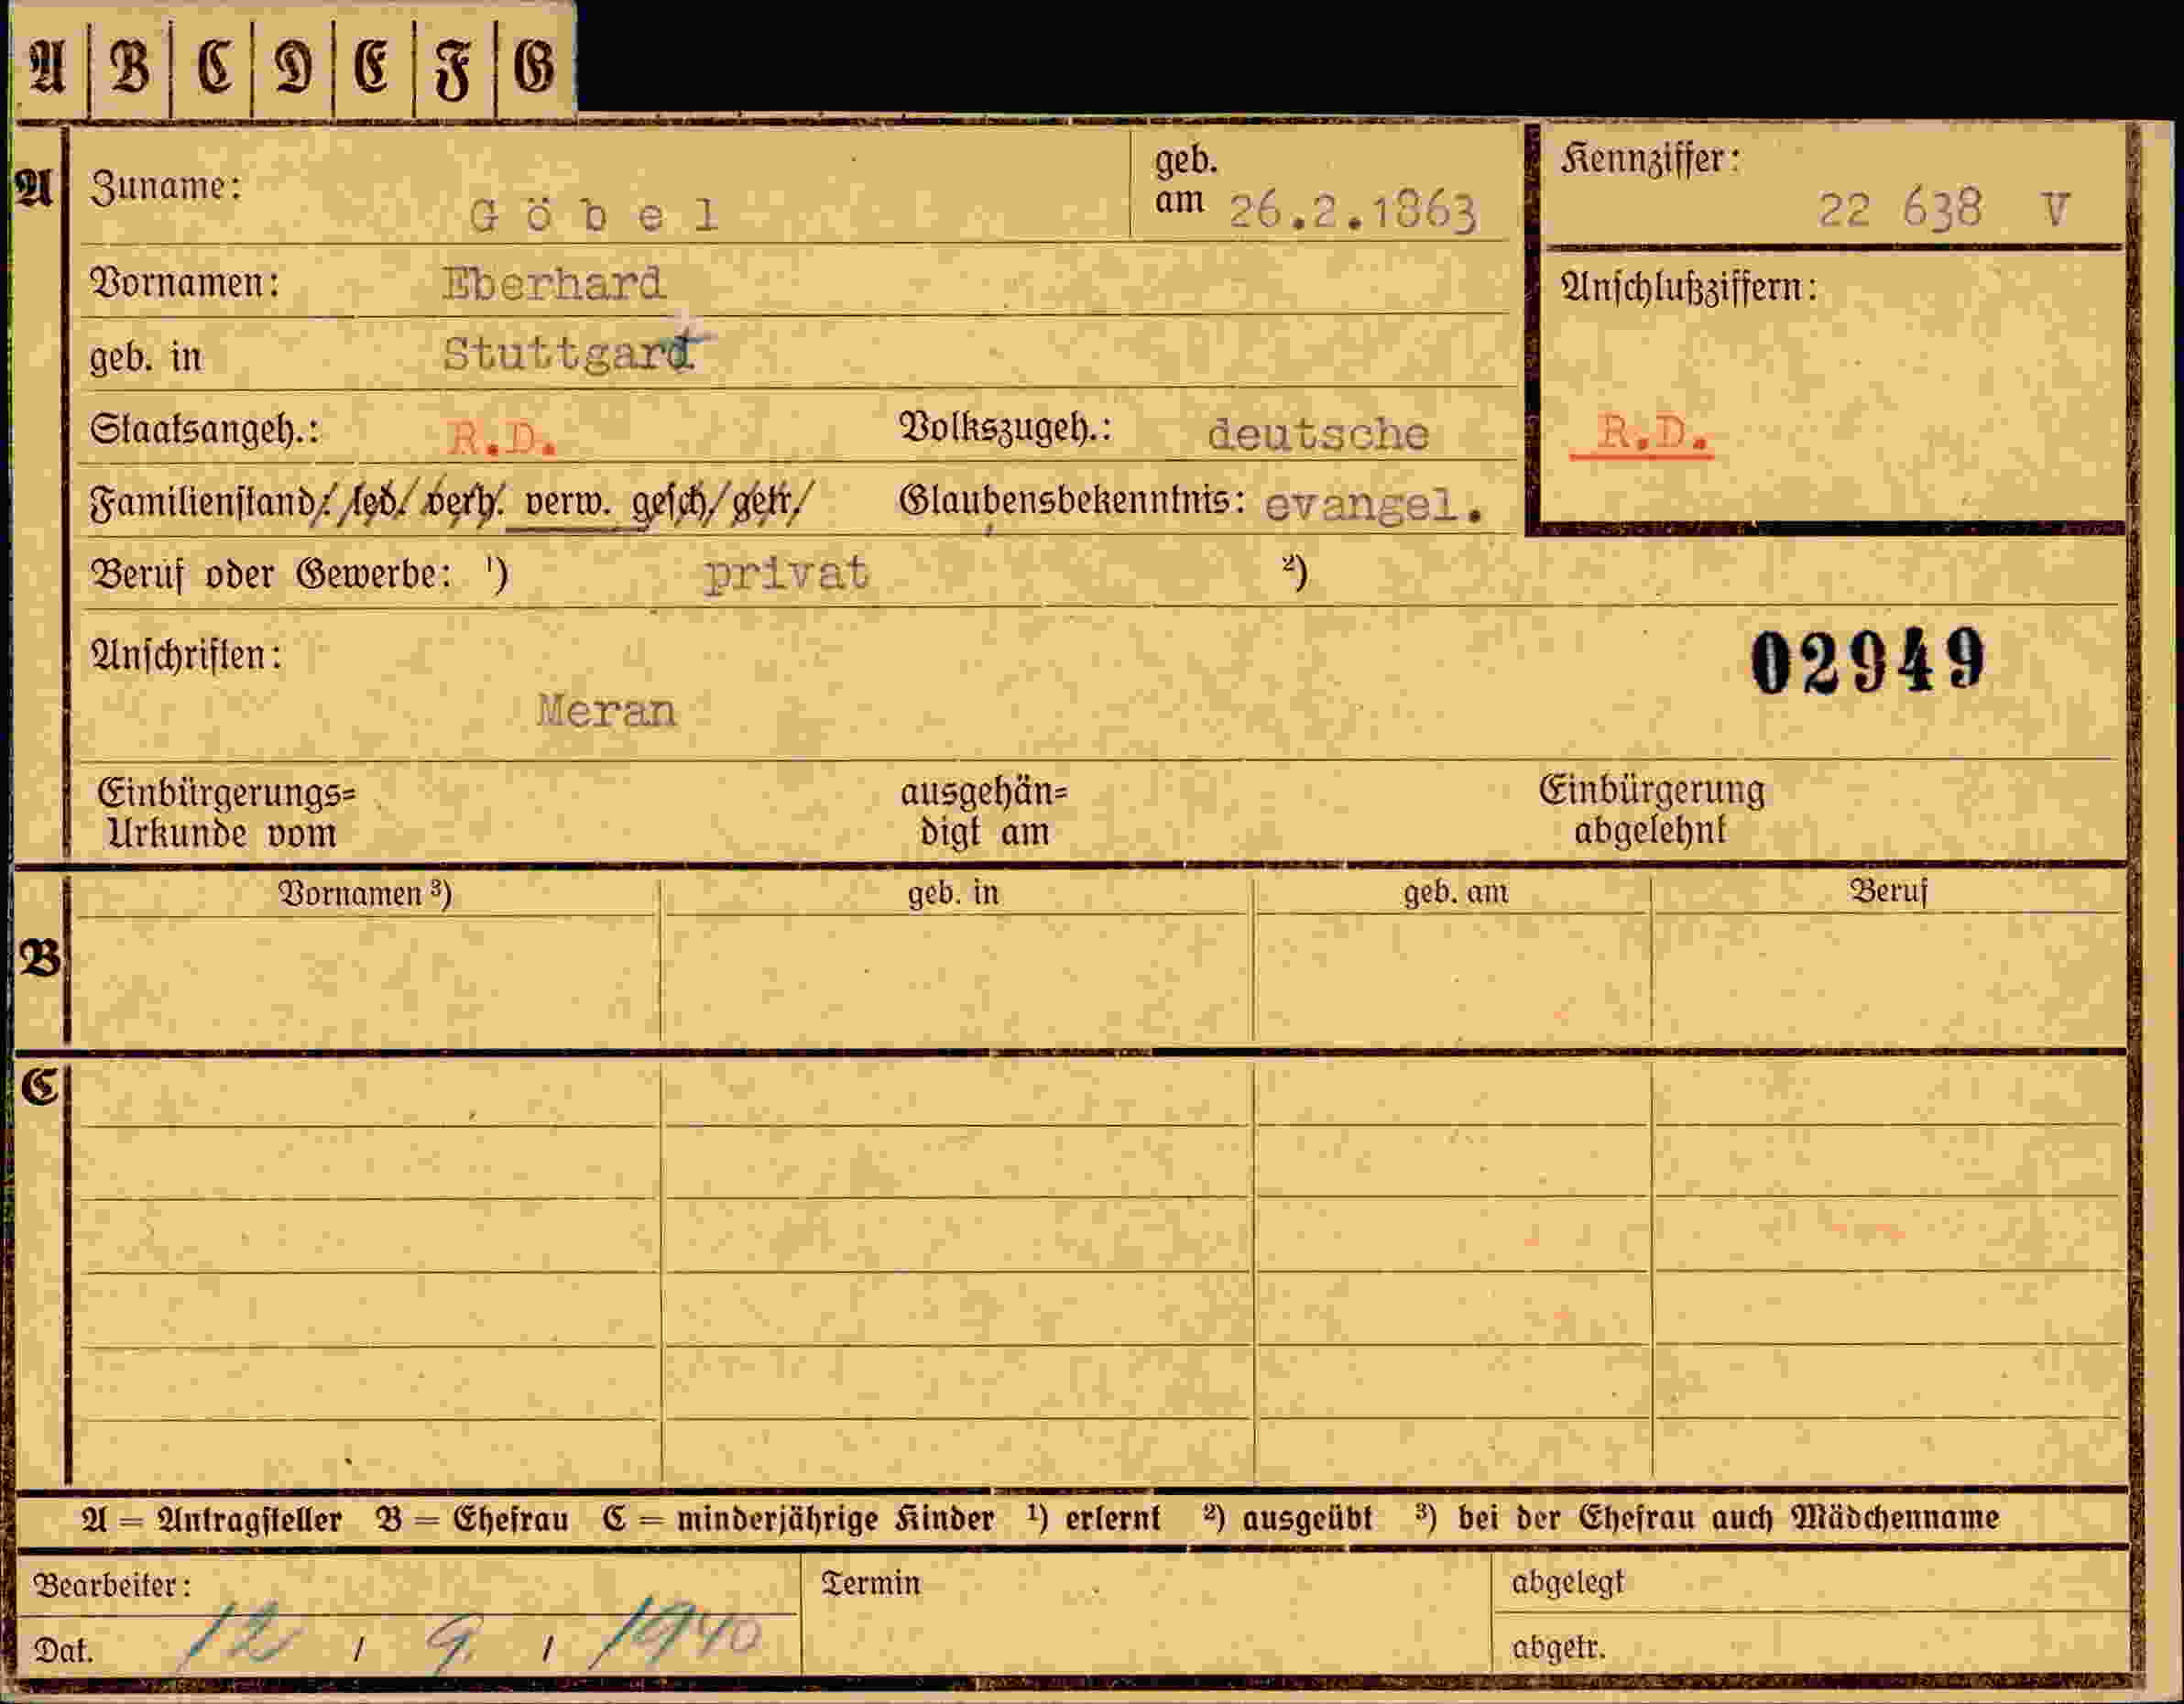 A B C D E F G
A Zuname: Göbel geb. am 26.2.1863 Kennziffer: 22 638 V
Vornamen: Eberhard Anschlußziffern:
geb. in Stuttgart
Staatsangeh.: R.D. Volkszugeh.: deutsche R.D.
Familienstand: led. verh. verw. gesch. getr. Glaubensbekenntnis: evangel.
Beruf oder Gewerbe: ¹) privat ²)
Anschriften: 02949
Meran
Einbürgerungs= ausgehän= Einbürgerung
Urkunde vom digt am abgelehnt
Vornamen ³) geb. in geb. am Beruf
B
C
A = Antragsteller B = Ehefrau C = minderjährige Kinder ¹) erlernt ²) ausgeübt ³) bei der Ehefrau auch Mädchenname
Bearbeiter: Termin abgelegt
Dat. 12 / 9. / 1940 abgetr.